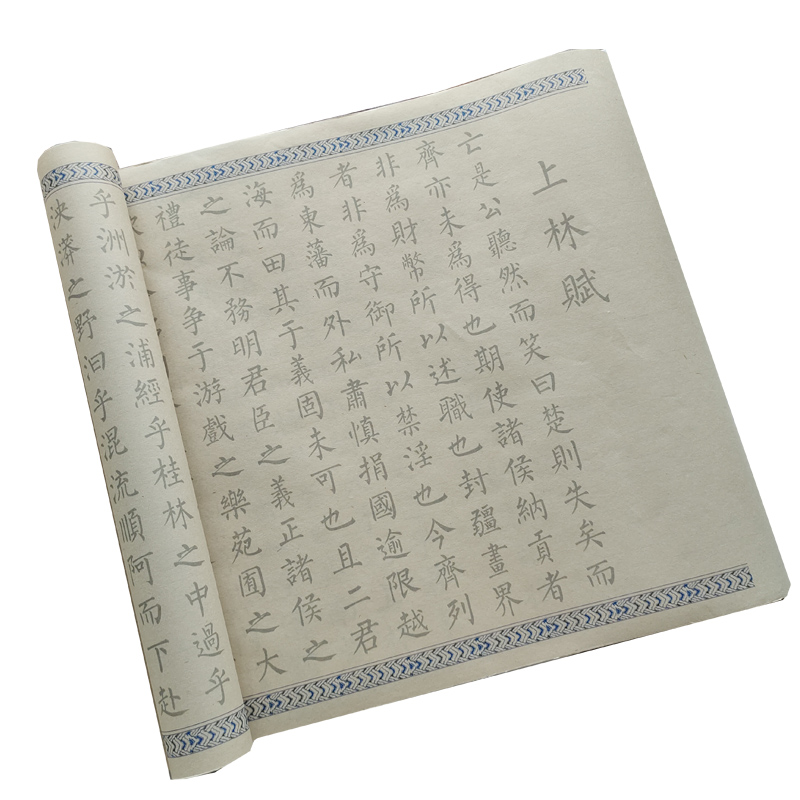 上林賦
亡是公聽然而笑曰楚則失矣而
齊亦未爲得也期使諸侯納貢者
非爲財幣所以述職也封疆畫界
者非爲守御所以禁淫也今齊列
爲東藩而外私肅慎捐國逾限越
海而田其于義固未可也且二君
之論不務明君臣之義正諸侯之
禮徒事争于游戲之樂苑囿之大
乎洲淤之浦經乎桂林之中過乎
泱漭之野汩乎混流順阿而下赴